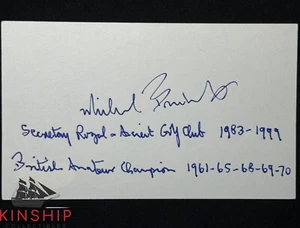 Michael Bonallack
Secretary Royal & Ancient Golf Club 1983-1999
British Amateur Champion 1961-65-68-69-70
KINSHIP